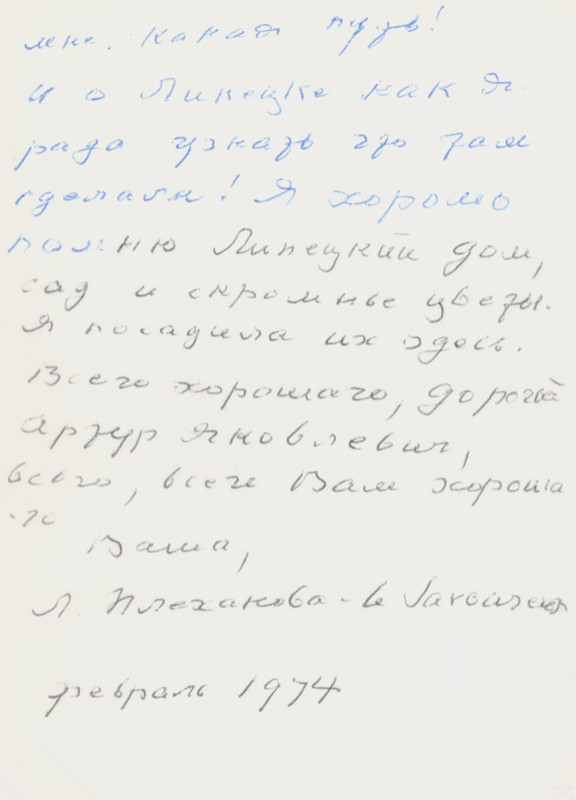 мне. Какая путь!
И о Липецке как я
рада узнать что там
сделали! Я хорошо
помню Липецкий дом,
сад и скромные цветы.
Я посадила их здесь.
Всего хорошаго, дорогой
Артур Яковлевич,
всего, всего Вам хороша
-го
Ваша,
Л. Плеханова - Le Savoureux
февраль 1974